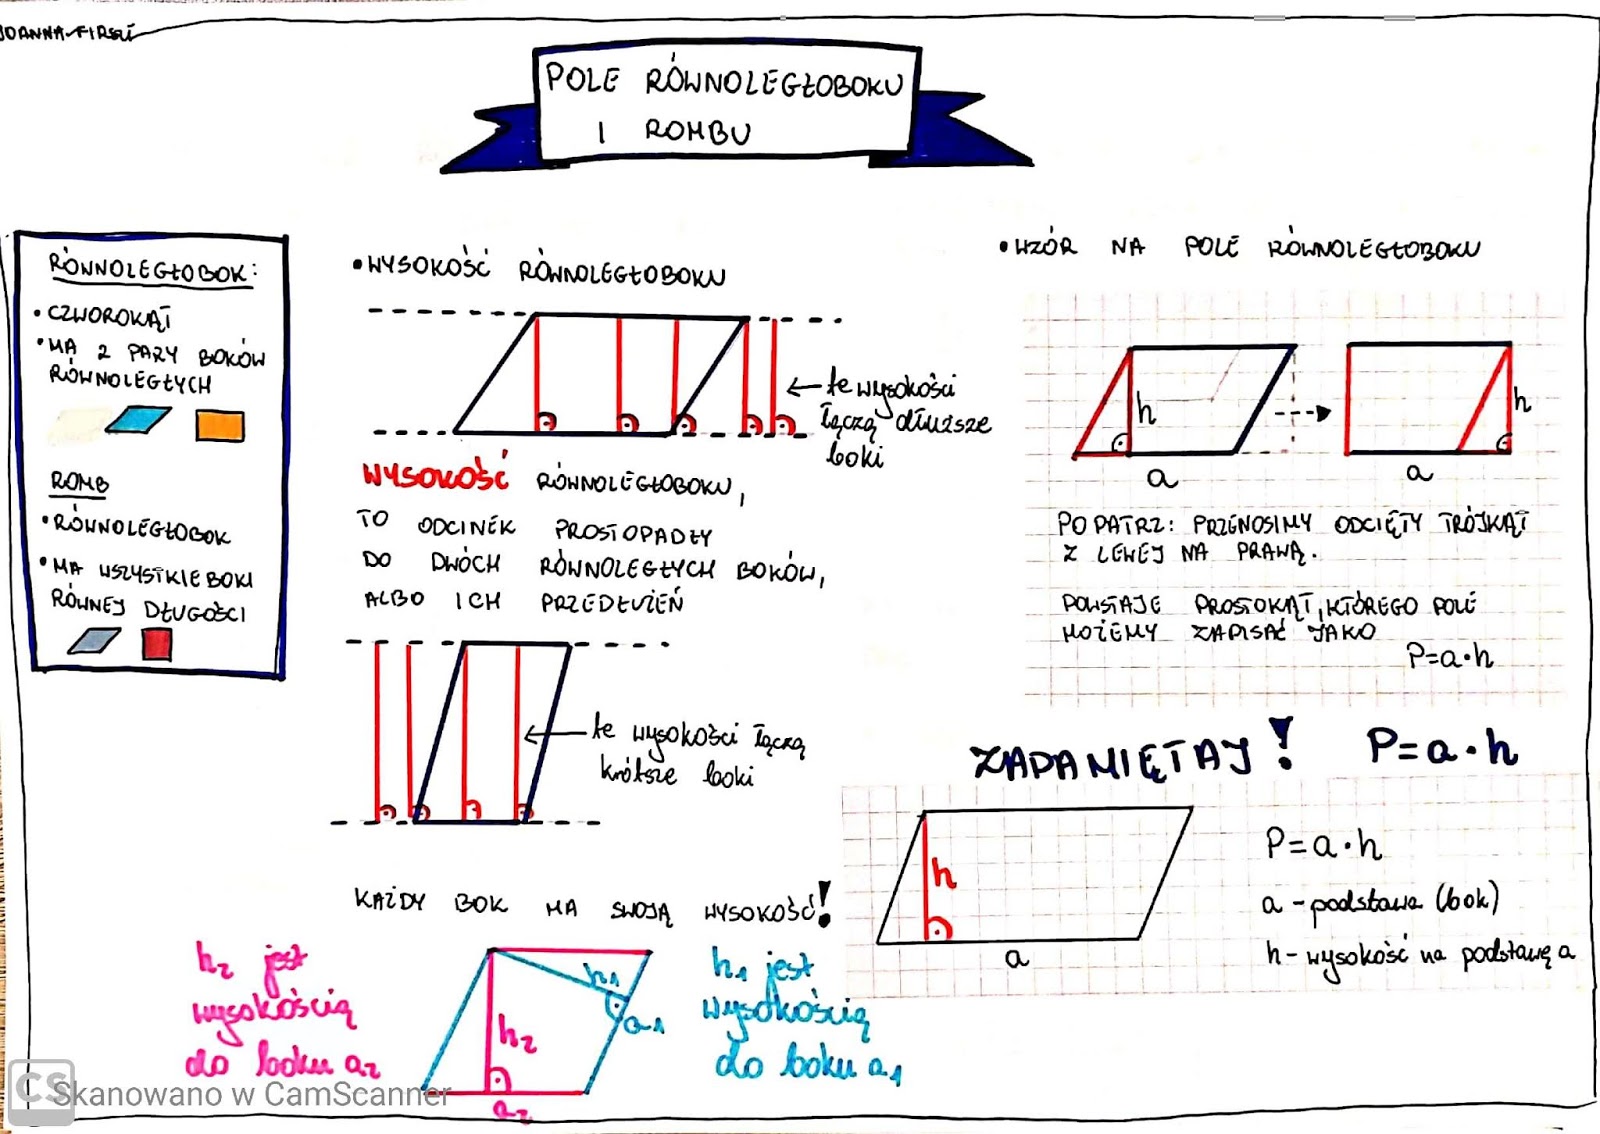 JOANNA FIRSLI
POLE RÓWNOLEGŁOBOKU
I ROMBU
RÓWNOLEGŁOBOK:
• CZWOROKĄT
• MA 2 PARY BOKÓW
RÓWNOLEGŁYCH
ROMB
• RÓWNOLEGŁOBOK
• MA WSZYSTKIE BOKI
RÓWNEJ DŁUGOŚCI
• WYSOKOŚĆ RÓWNOLEGŁOBOKU
te wysokości
łączą dłuższe
boki
WYSOKOŚĆ RÓWNOLEGŁOBOKU,
TO ODCINEK PROSTOPADŁY
DO DWÓCH RÓWNOLEGŁYCH BOKÓW,
ALBO ICH PRZEDŁUŻEŃ
te wysokości łączą
krótsze boki
KAŻDY BOK MA SWOJĄ WYSOKOŚĆ!
h2 jest
wysokością
do boku a2
h1
a1
h2
a2
h1 jest
wysokością
do boku a1
• WZÓR NA POLE RÓWNOLEGŁOBOKU
h
a
h
a
POPATRZ: PRZENOSIMY ODCIĘTY TRÓJKĄT
Z LEWEJ NA PRAWĄ.
POWSTAJE PROSTOKĄT, KTÓREGO POLE
MOŻEMY ZAPISAĆ JAKO
P=a·h
ZAPAMIĘTAJ! P=a·h
h
a
P=a·h
a - podstawa (bok)
h - wysokość na podstawę a
CS Skanowano w CamScanner